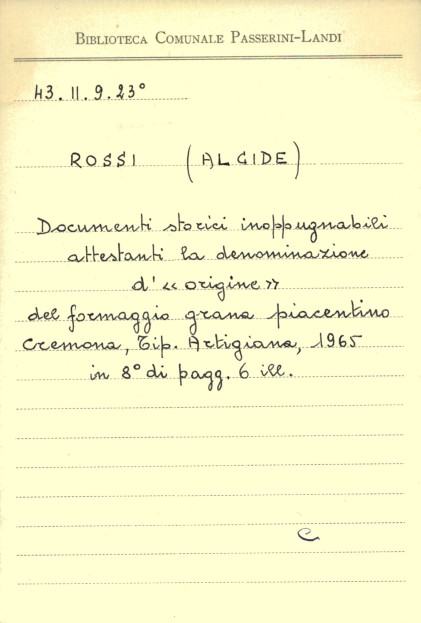 BIBLIOTECA COMUNALE PASSERINI-LANDI
43. II. 9. 23°
ROSSI (ALCIDE)
Documenti storici inoppugnabili
attestanti la denominazione
d' « origine »
del formaggio grana piacentino
Cremona, Tip. Artigiana, 1965
in 8° di pagg. 6 ill.
C